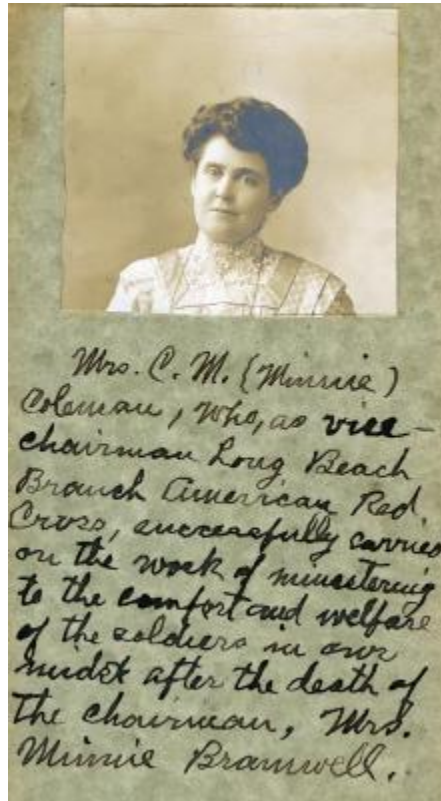 Mrs. C. M. (Minnie)
Coleman, who, as vice-
chairman Long Beach
Branch American Red
Cross, successfully carried
on the work of ministering
to the comfort and welfare
of the soldiers in our
midst after the death of
the chairman, Mrs.
Minnie Bramwell.